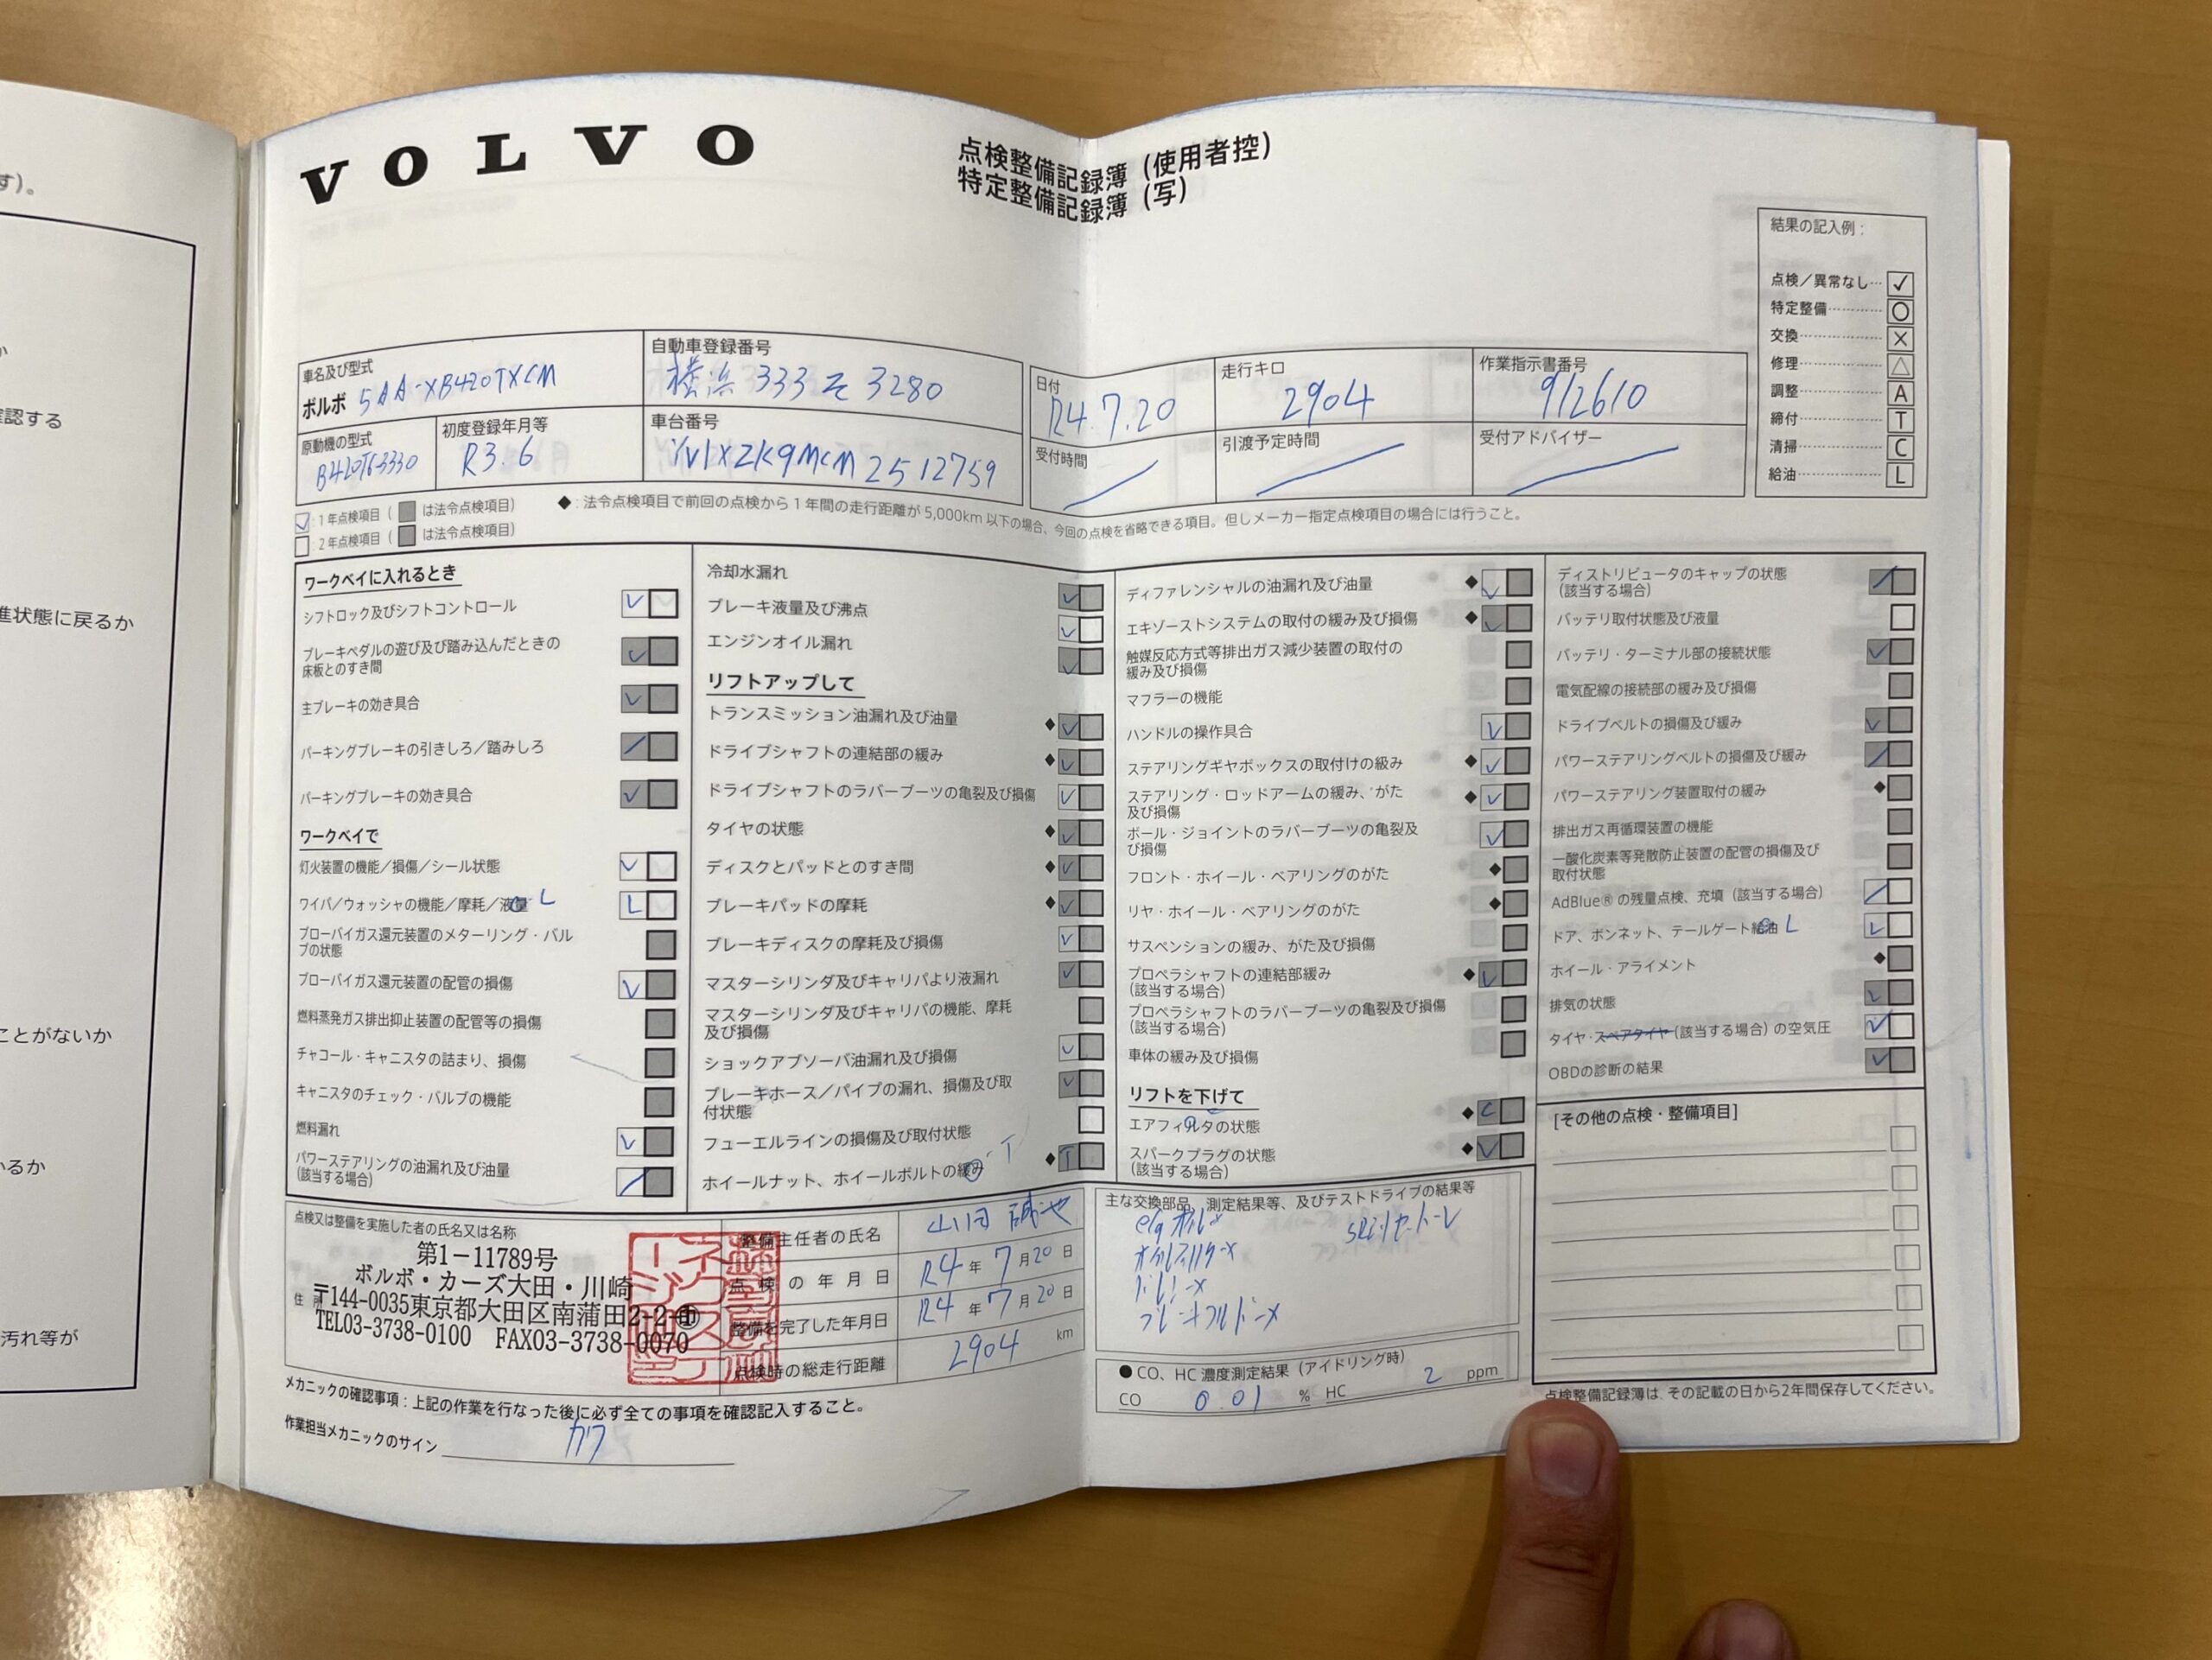 す)。
か
確認する
進状態に戻るか
ことがないか
いるか
汚れ等が
VOLVO
点検整備記録簿 (使用者控)
特定整備記録簿 (写)
結果の記入例：
点検／異常なし… ✓
特定整備 ○
交換 ×
修理 △
調整 A
締付 T
清掃 C
給油 L
車名及び型式
ボルボ 5AA-XB420TXCM
自動車登録番号
横浜 333 そ 3280
原動機の型式
初度登録年月等
R3.6
車台番号
YV1XZK9MCM2512759
日付
R4.7.20
走行キロ
2904
作業指示書番号
912610
受付時間
引渡予定時間
受付アドバイザー
：1年点検項目 ( は法令点検項目)
：2年点検項目 ( は法令点検項目)
◆：法令点検項目で前回の点検から1年間の走行距離が5,000km以下の場合、今回の点検を省略できる項目。但しメーカー指定点検項目の場合には行うこと。
ワークベイに入れるとき
シフトロック及びシフトコントロール
ブレーキペダルの遊び及び踏み込んだときの
床板とのすき間
主ブレーキの効き具合
パーキングブレーキの引きしろ／踏みしろ
パーキングブレーキの効き具合
ワークベイで
灯火装置の機能／損傷／シール状態
ワイパ／ウォッシャの機能／摩耗／液量 L L
ブローバイガス還元装置のメターリング・バル
ブの状態
ブローバイガス還元装置の配管の損傷
燃料蒸発ガス排出抑止装置の配管等の損傷
チャコール・キャニスタの詰まり、損傷
キャニスタのチェック・バルブの機能
燃料漏れ
パワーステアリングの油漏れ及び油量
(該当する場合)
冷却水漏れ
ブレーキ液量及び沸点
エンジンオイル漏れ
リフトアップして
トランスミッション油漏れ及び油量 ◆
ドライブシャフトの連結部の緩み ◆
ドライブシャフトのラバーブーツの亀裂及び損傷
タイヤの状態 ◆
ディスクとパッドとのすき間 ◆
ブレーキパッドの摩耗 ◆
ブレーキディスクの摩耗及び損傷
マスターシリンダ及びキャリパより液漏れ
マスターシリンダ及びキャリパの機能、摩耗
及び損傷
ショックアブソーバ油漏れ及び損傷
ブレーキホース／パイプの漏れ、損傷及び取
付状態
フューエルラインの損傷及び取付状態
ホイールナット、ホイールボルトの緩み T ◆ T
ディファレンシャルの油漏れ及び油量 ◆
エキゾーストシステムの取付の緩み及び損傷 ◆
触媒反応方式等排出ガス減少装置の取付の
緩み及び損傷
マフラーの機能
ハンドルの操作具合
ステアリングギヤボックスの取付けの緩み ◆
ステアリング・ロッドアームの緩み、がた ◆
及び損傷
ボール・ジョイントのラバーブーツの亀裂及
び損傷
フロント・ホイール・ベアリングのがた ◆
リヤ・ホイール・ベアリングのがた ◆
サスペンションの緩み、がた及び損傷
プロペラシャフトの連結部緩み ◆
(該当する場合)
プロペラシャフトのラバーブーツの亀裂及び損傷
(該当する場合)
車体の緩み及び損傷
リフトを下げて
エアフィルタの状態 ◆ C
スパークプラグの状態 ◆
(該当する場合)
ディストリビュータのキャップの状態
(該当する場合)
バッテリ取付状態及び液量
バッテリ・ターミナル部の接続状態
電気配線の接続部の緩み及び損傷
ドライブベルトの損傷及び緩み
パワーステアリングベルトの損傷及び緩み
パワーステアリング装置取付の緩み ◆
排出ガス再循環装置の機能
一酸化炭素等発散防止装置の配管の損傷及び
取付状態
AdBlue®の残量点検、充填 (該当する場合)
ドア、ボンネット、テールゲート給油 L L
ホイール・アライメント ◆
排気の状態
タイヤ・スペアタイヤ (該当する場合) の空気圧
OBDの診断の結果
[その他の点検・整備項目]
点検又は整備を実施した者の氏名又は名称
第1－11789号
ボルボ・カーズ大田・川崎
〒144-0035東京都大田区南蒲田2-2-
TEL03-3738-0100 FAX03-3738-0070
整備主任者の氏名
点検の年月日 R4年7月20日
整備を完了した年月日 R4年7月20日
点検時の総走行距離 2904 km
主な交換部品、測定結果等、及びテストドライブの結果等
● CO、HC 濃度測定結果 (アイドリング時)
CO 0.01 % HC 2 ppm
点検整備記録簿は、その記載の日から2年間保存してください。
メカニックの確認事項：上記の作業を行なった後に必ず全ての事項を確認記入すること。
作業担当メカニックのサイン